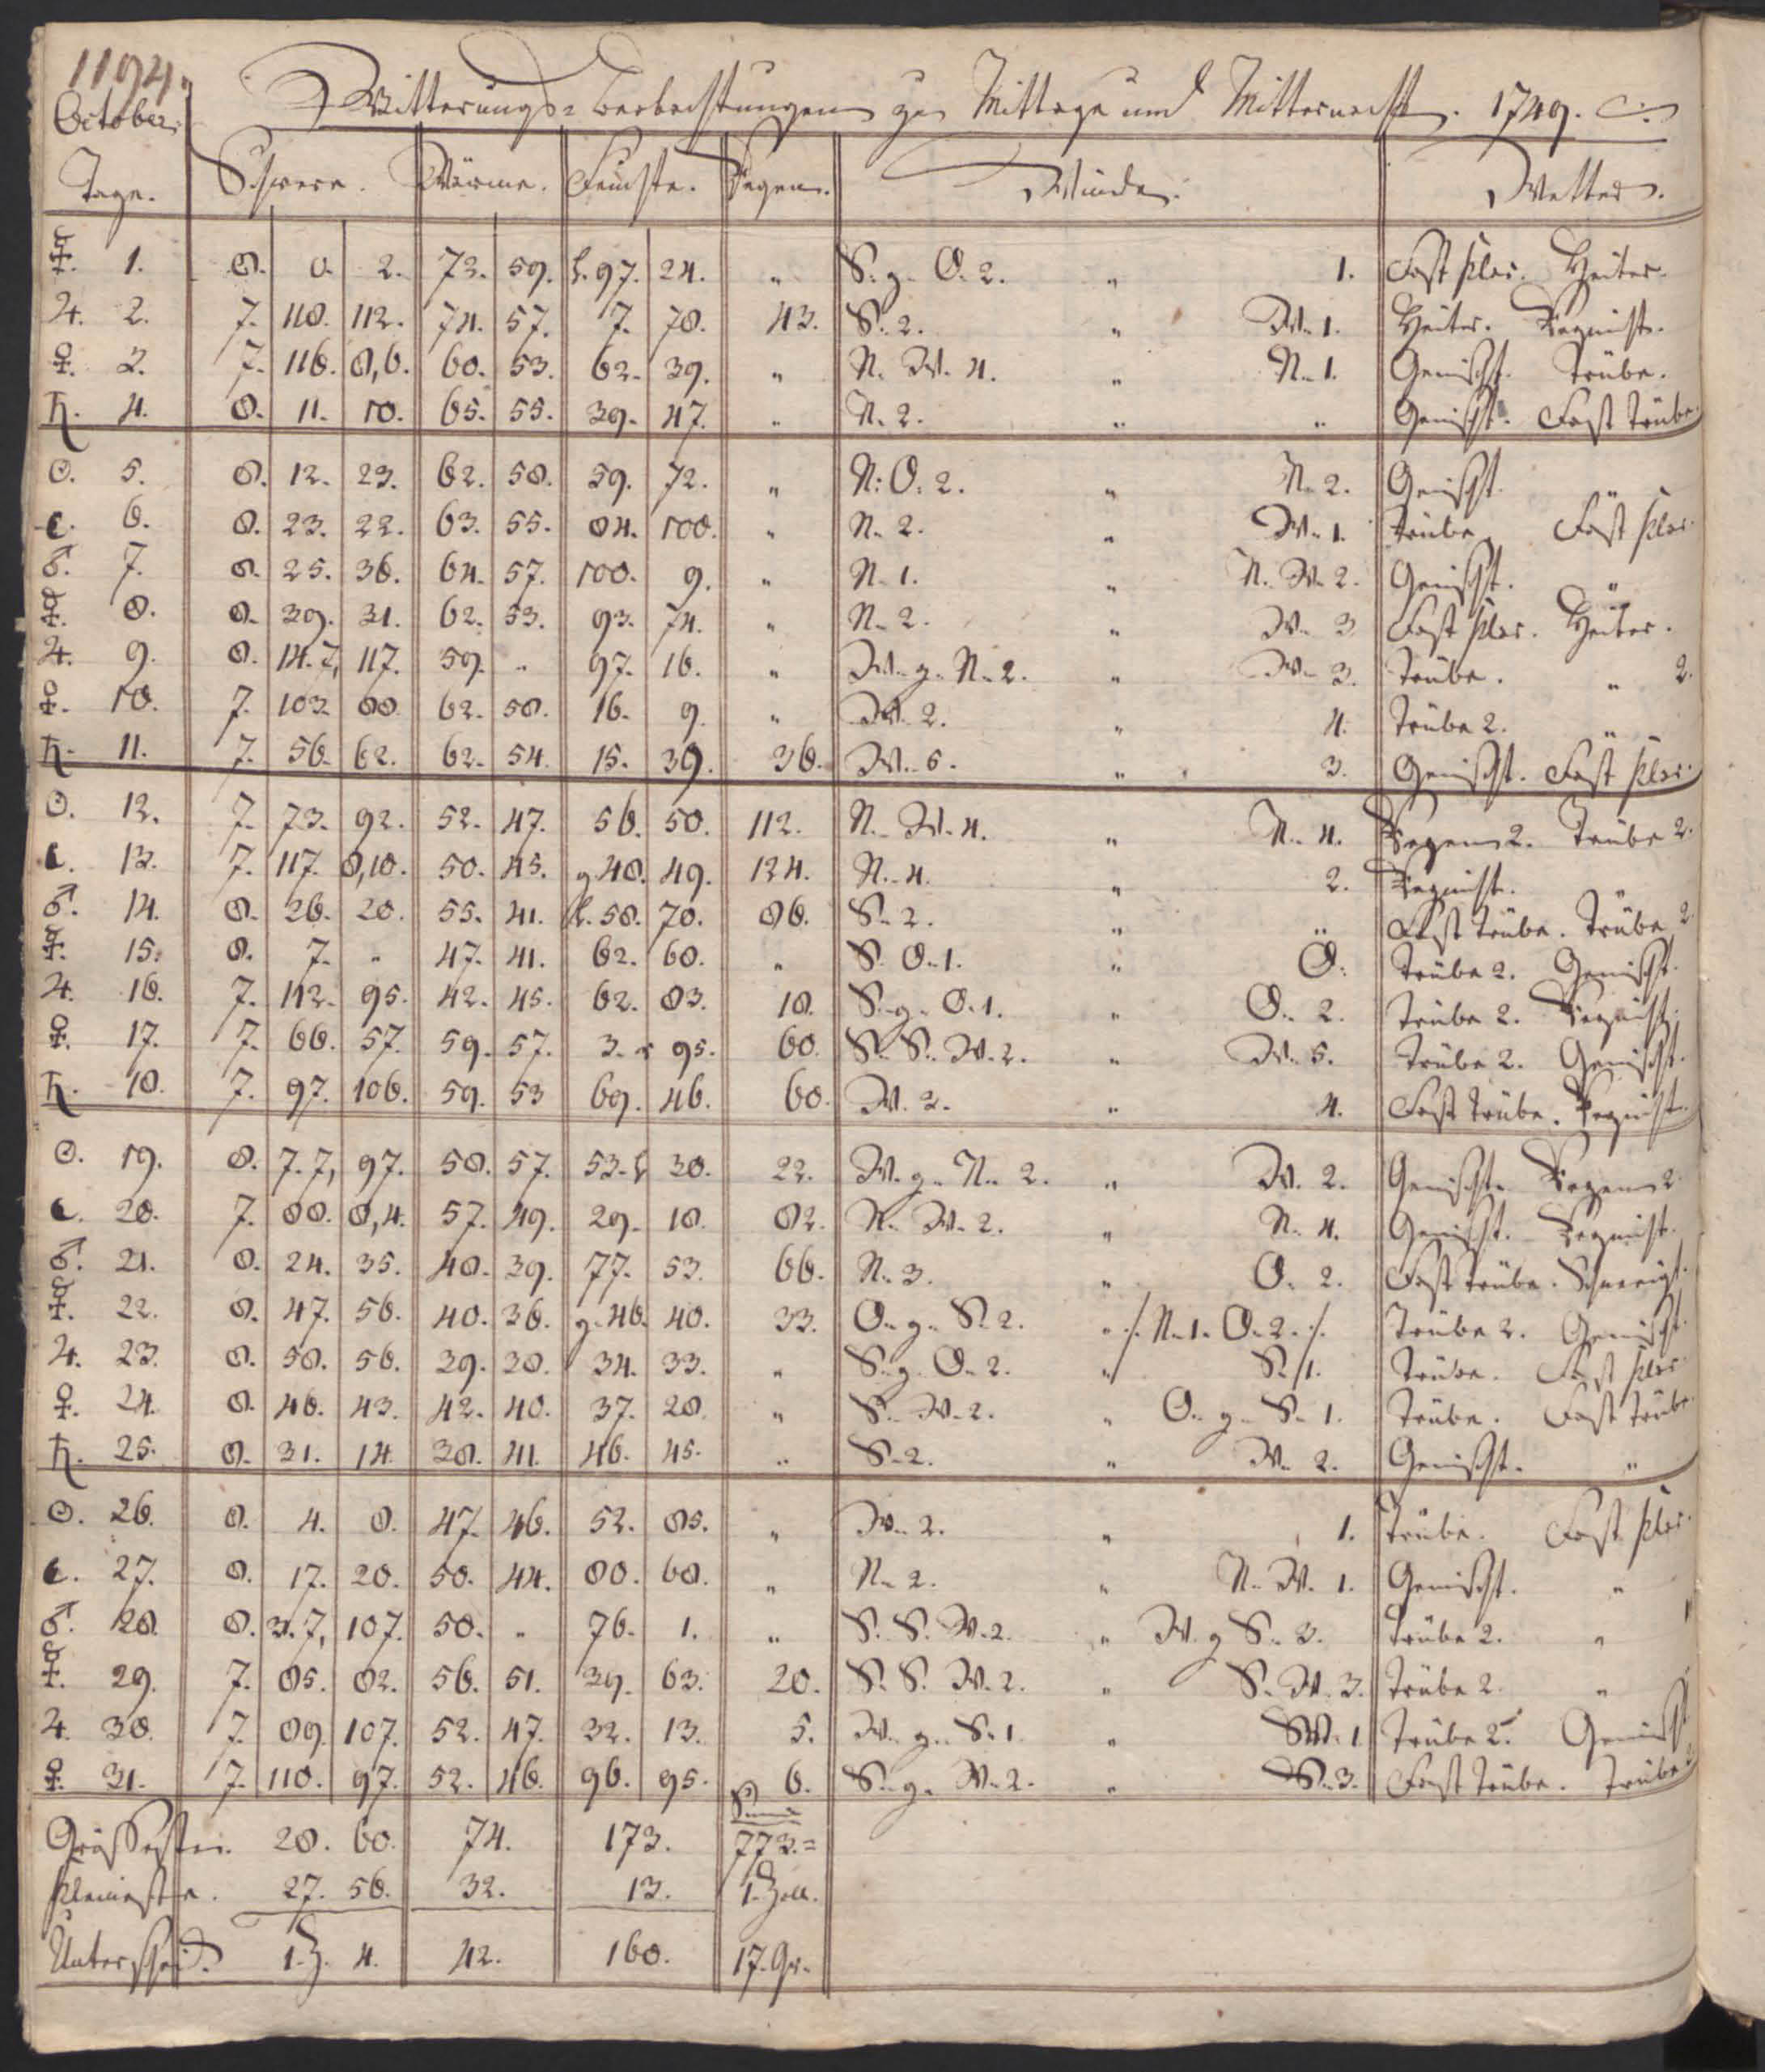 1194.
October. Witterungs-Beobachtungen zu Mittage und Mitternacht. 1749. C.
Tage. Schwere. Wärme. Feuchte. Regen. Winde. Wetter.
☿. 1. 8. 0. 2. 73. 59. h. 97. 24. " S. g. O. 2. " 1. Fast klar. Heiter.
♃. 2. 7. 118. 112. 74. 57. 7. 78. 43. S. 2. " W. 1. Heiter. Regnicht.
♀. 3. 7. 116. 8,6. 60. 53. 62. 39. " N. W. 4. " N. 1. Gemischt. Trübe.
♄. 4. 8. 11. 10. 65. 55. 39. 47. " N. 2. " " Gemischt. Fast trübe.
☉. 5. 8. 12. 23. 62. 58. 59. 72. " N. O. 2. " N. 2. Gemischt. "
☾. 6. 8. 23. 22. 63. 55. 84. 100. " N. 2. " W. 1. Trübe. Fast klar.
♂. 7. 8. 25. 36. 64. 57. 100. 9. " N. 1. " N. W. 2. Gemischt. "
☿. 8. 8. 39. 31. 62. 53. 93. 74. " N. 2. " W. 3. Fast klar. Heiter.
♃. 9. 8. 14. 7, 117. 59. " 97. 16. " W. g. N. 2. " W. 3. Trübe. " 2.
♀. 10. 7. 103. 88. 62. 58. 16. 9. " W. 2. " 4. Trübe 2. "
♄. 11. 7. 56. 62. 62. 54. 15. 39. 36. W. 6. " 3. Gemischt. Fast klar.
☉. 12. 7. 73. 92. 52. 47. 56. 50. 112. N. W. 4. " N. 4. Regen 2. Trübe 2.
☾. 13. 7. 117. 8,10. 50. 45. g. 48. 49. 124. N. 4. " 2. Regnicht. "
♂. 14. 8. 26. 20. 55. 41. h. 58. 70. 86. S. 2. " " Fast trübe. Trübe 2.
☿. 15. 8. 7. " 47. 41. 62. 60. " S. O. 1. " O. Trübe 2. Gemischt.
♃. 16. 7. 112. 95. 42. 45. 62. 83. 18. S. g. O. 1. " O. 2. Trübe 2. Regnicht.
♀. 17. 7. 66. 57. 59. 57. 3. 95. 60. S. S. W. 2. " W. 5. Trübe 2. Gemischt.
♄. 18. 7. 97. 106. 59. 53 69. 46. 60. W. 3. " 4. Fast trübe. Regnicht.
☉. 19. 8. 7. 7, 97. 58. 57. 53. h 30. 22. W. g. N. 2. " W. 2. Gemischt. Regen 2.
☾. 20. 7. 88. 8,4. 57. 49. 29. 18. 82. N. W. 2. " N. 4. Gemischt. Regnicht.
♂. 21. 8. 24. 35. 48. 39. 77. 53. 66. N. 3. " O. 2. Fast trübe. Schneeigt.
☿. 22. 8. 47. 56. 40. 36. g. 46. 40. 33. O. g. S. 2. " /. N. 1. O. 2. /. Trübe 2. Gemischt.
♃. 23. 8. 58. 56. 39. 38. 34. 33. " S. g. O. 2. " S. 1. Trübe. Fast klar.
♀. 24. 8. 46. 43. 42. 40. 37. 28. " S. W. 2. " O. g. S. 1. Trübe. Fast trübe.
♄. 25. 8. 31. 14. 38. 41. 46. 45. " S. 2. " W. 2. Gemischt. "
☉. 26. 8. 4. 8. 47. 46. 52. 85. " W. 2. " 1. Trübe. Fast klar.
☾. 27. 8. 17. 20. 50. 44. 80. 68. " N. 2. " N. W. 1. Gemischt. "
♂. 28. 8. 3. 7, 107. 50. " 76. 1. " S. S. W. 2. " W. g S. 3. Trübe 2. "
☿. 29. 7. 85. 82. 56. 51. 39. 63. 20. S. S. W. 2. " S. W. 3. Trübe 2. "
♃. 30. 7. 89. 107. 52. 47. 32. 13. 5. W. g. S. 1 " SW. 1 Trübe 2. Gemischt
♀. 31. 7. 110. 97. 52. 46. 96. 95. 6. S. g. W. 2. " S. 3. Fast trübe. Trübe 2
Grössesten. 28. 60. 74. 173. 773. =
Kleineste. 27. 56. 32. 13. 1. Zoll.
Unterscheid. 1. Z. 4. 42. 160. 17. Gr.